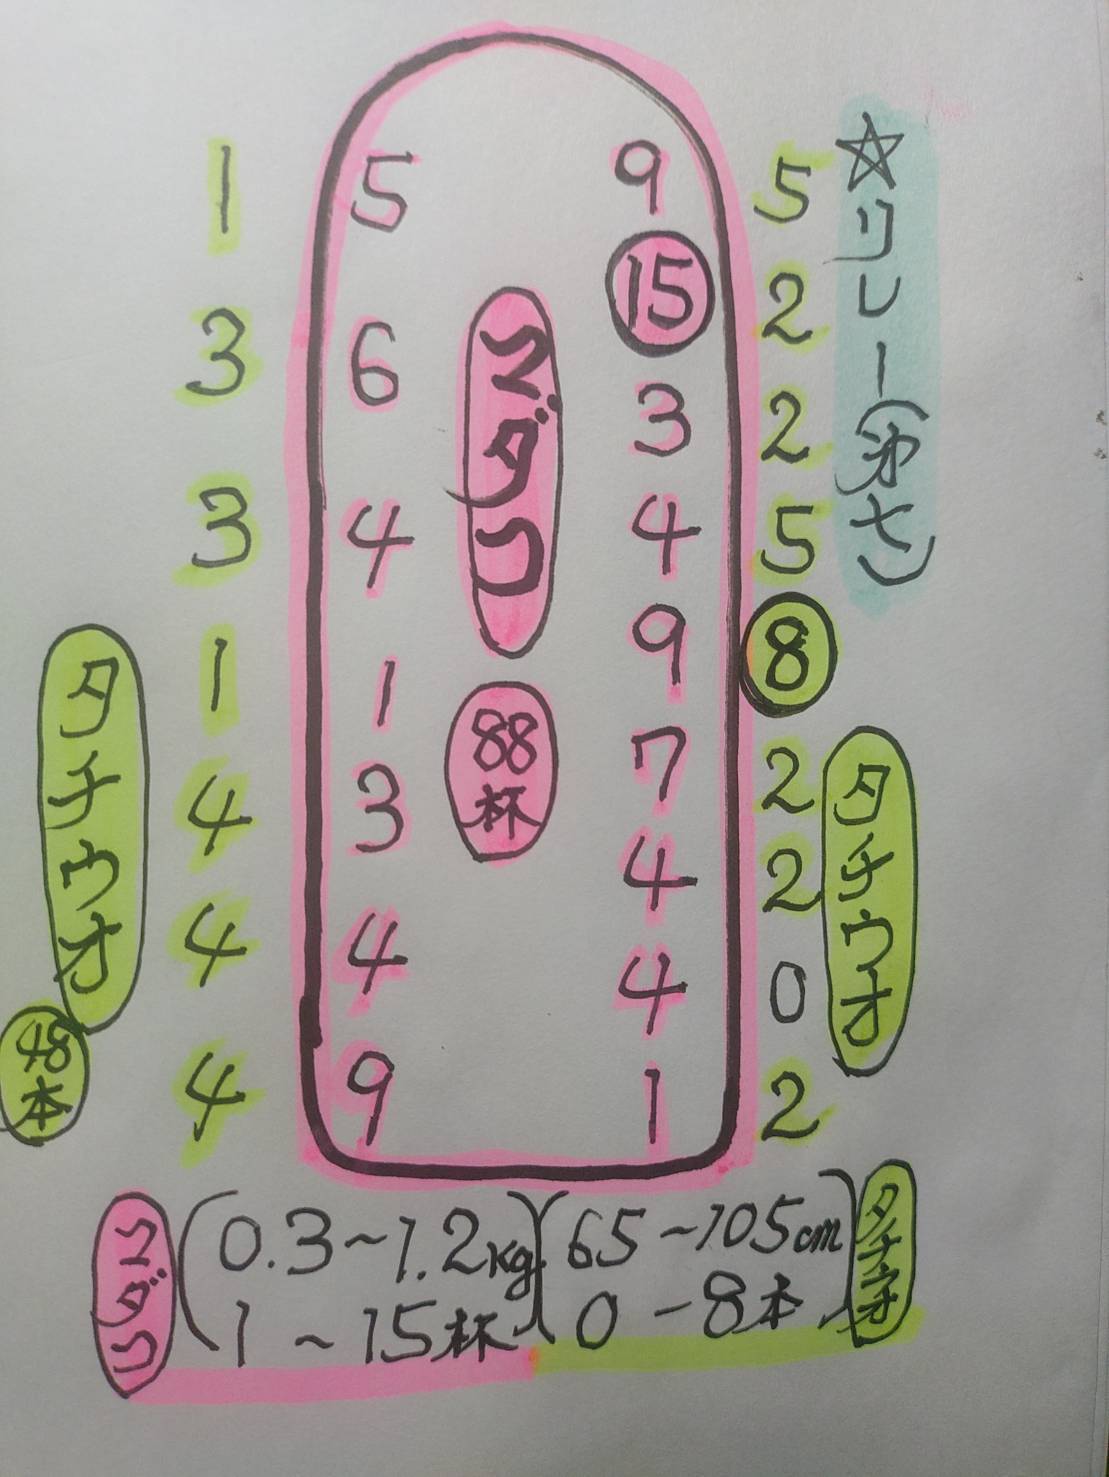 ☆リレー(第七)
5
2
2
5
8
2
2
0
2
タチウオ
9
15
3
4
9
7
4
4
1
マダコ
88杯
5
6
4
1
3
4
9
1
3
3
1
4
4
4
タチウオ
48本
マダコ
(0.3~1.2kg)
1~15杯
(65~105cm)
0-8本
タチ魚